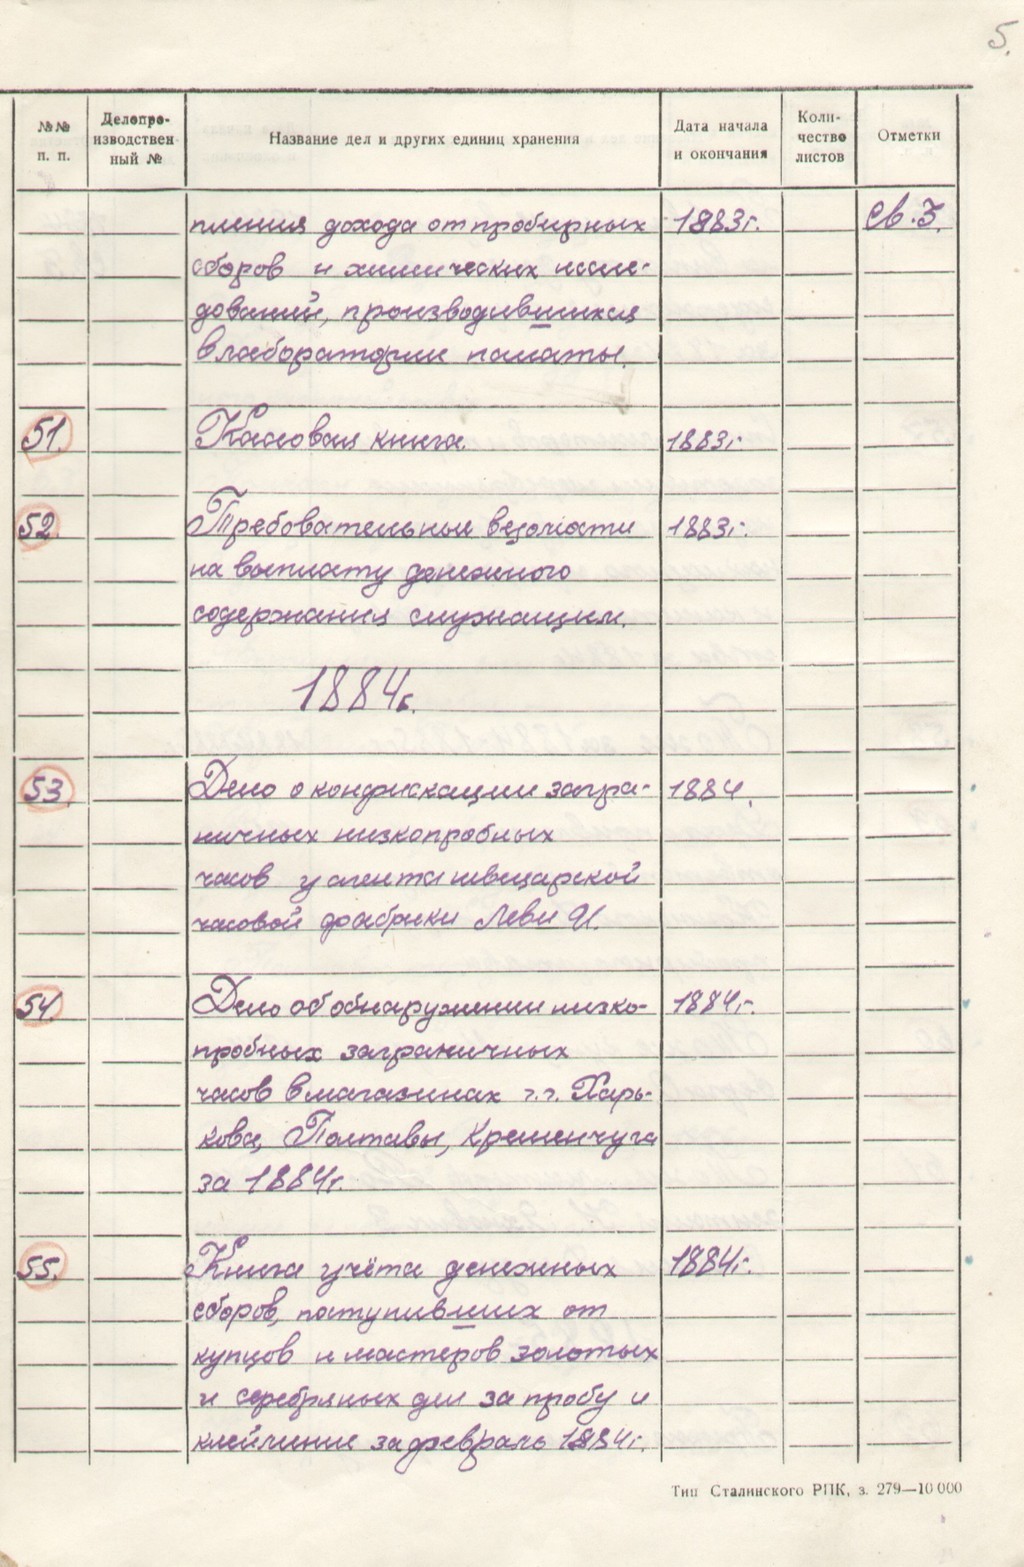 5.
№№ п. п.
Делопроизводственный №
Название дел и других единиц хранения
Дата начала и окончания
Количество листов
Отметки
пления дохода от пробирных 1883г. св. 3.
сборов и химических иссле-
дований, производившихся
в лаборатории палаты.
51. Кассовая книга. 1883г.
52. Требовательные ведомости 1883г.
на выплату денежного
содержания служащим.
1884г.
53. Дело о конфискации загра- 1884.
ничных низкопробных
часов у агента швецарской
часовой фабрики Леви И.
54. Дело об обнаружении низко- 1884г.
пробных заграничных
часов в магазинах г.г. Харь-
кова, Полтавы, Кременчуга
за 1884г.
55. Книга учёта денежных 1884г.
сборов, поступивших от
купцов и мастеров золотых
и серебряных дел за пробу и
клеймение за февраль 1884г.
Тип Сталинского РПК, з. 279—10 000